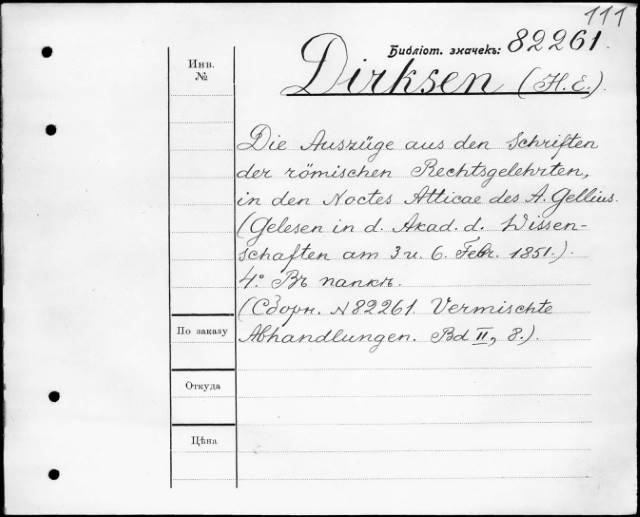 111
Библіот. значекъ: 82261.
Инв.
№
Dirksen (H. E.).
Die Auszüge aus den Schriften
der römischen Rechtsgelehrten,
in den Noctes Atticae des A. Gellius.
(Gelesen in d. Akad. d. Wissen-
schaften am 3 u. 6. Febr. 1851.).
4º. Въ папкѣ.
(Сборн. N 82261. Vermischte
Abhandlungen. Bd II, 8.).
По заказу
Откуда
Цѣна